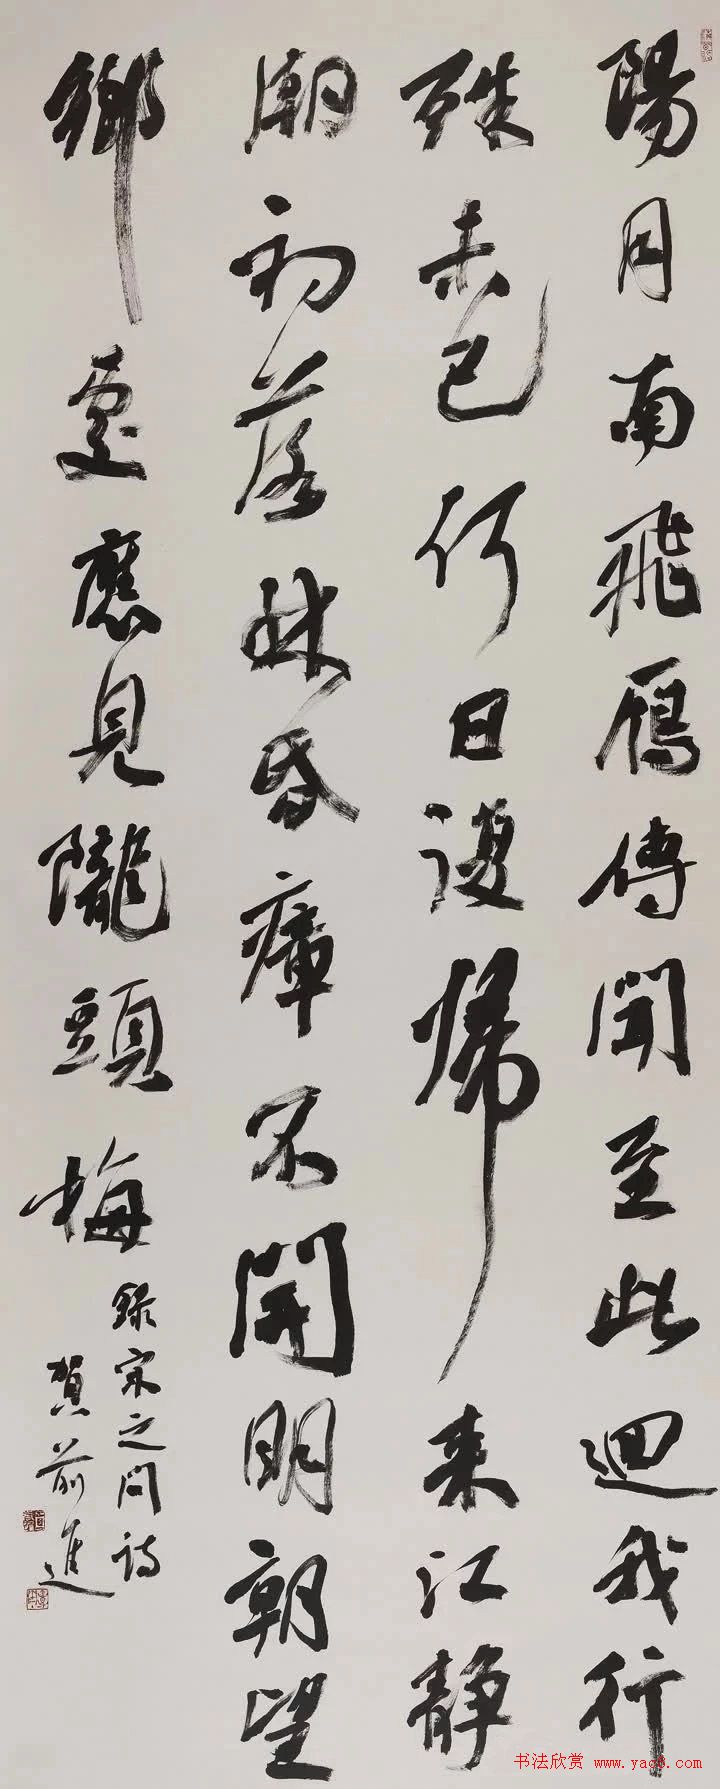 陽月南飛雁傳聞至此迴我行
殊未已何日復歸来江静
潮初落林昏瘴不開明朝望
鄉處應見隴頭梅
録宋之問詩
賀前進
书法欣赏 www.yac8.com